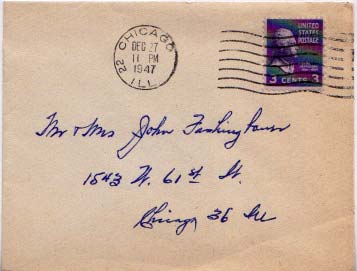 22 CHICAGO ILL.
DEC 27
11 PM
1947
UNITED
STATES
POSTAGE
3 CENTS 3
Mr & Mrs John Fashinghauer
1543 W. 61st St.
Chicago 36 Ill